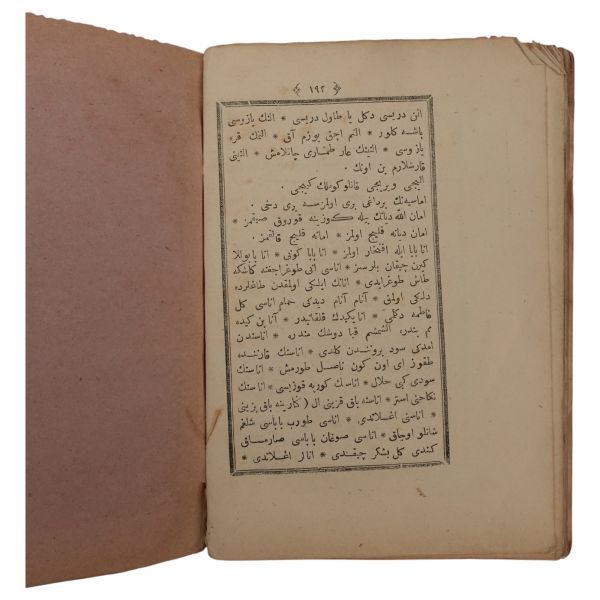 ﴿ ١٩٢ ﴾
الن دریسی دکل یا طاول دریسی * النك یازوسی
باشه کلور * النم اچق یوزم آق * النك قره
یازوسی * النینك عار طمتاری چاتلامش * النینی
قارشلارم بن اونك .
الیجی ویریجی قانلو کومك کیجی .
اماسیه نك برداغی بری اولمزسه بری دخی .
امان الله دیانك بیله کوزینه قوروق صیقمز *
امان دیانه قلیج اولمز * امانه قلیج قالقمز .
انا بابا ایله افتخار اولمز * انا بابا کونی * انا بابا یوللا
کبرن چیقان بلرسز * اناسی آنی طوغراجغنه کاشکه
طاش طوغرایدی * انانك ایلکی اولمقدن طاغلرده
دلکی اولمق * آنام آنام دیدکی حمام اناسی کل
فاطمه دکلمی * انا یکیدك قلقانیدر * آنا بن کیده
مم بندره الشمشم قبا دوشك مندره * اناسندن
امدکی سود بروننندن کلدی * اناسنك قارننده
طقوز ای اون کون ناصل طورمش * اناسنك
سودی کبی حلال * اناسنك کوربه قوزیسی * اناسنك
نکاحنی استر * اناسنه باق قزینی ال ( کنارینه باق بزینی
* اناسنی اغلاتدی * اناسی طورب باباسی شلغم
شانلو اوجاق * اناسی صوغان باباسی صارمساق
کندی کل بشکر چیقندی * انالر اغلاتدی *